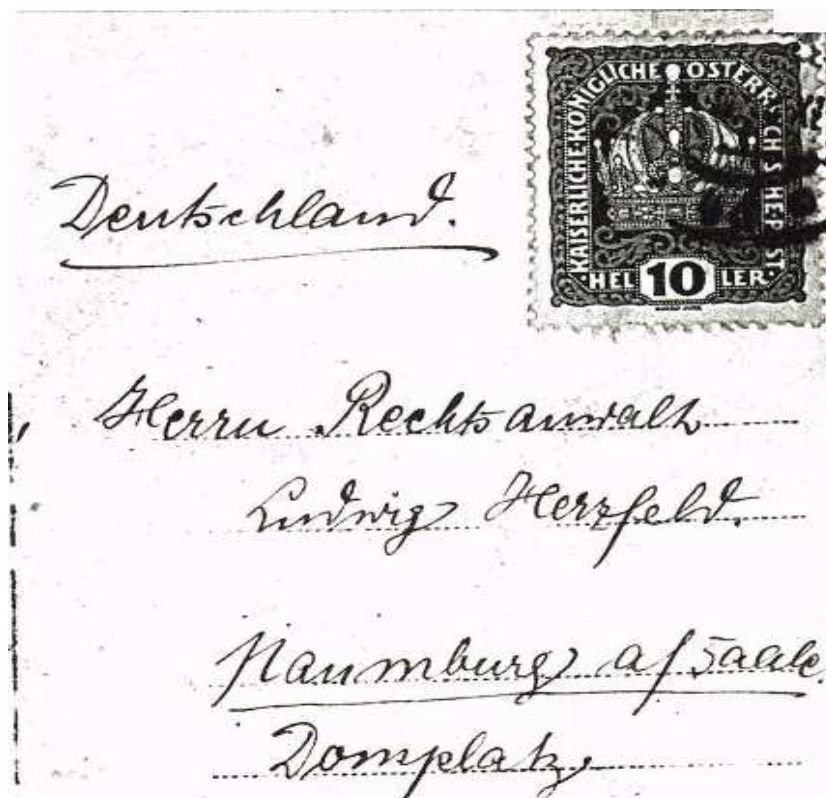 KAISERLICHE KÖNIGLICHE ÖSTERR
CHISCHE POST
HEL 10 LER
Deutschland.
Herrn Rechtsanwalt
Ludwig Herzfeld.
Naumburg a/Saale.
Domplatz.